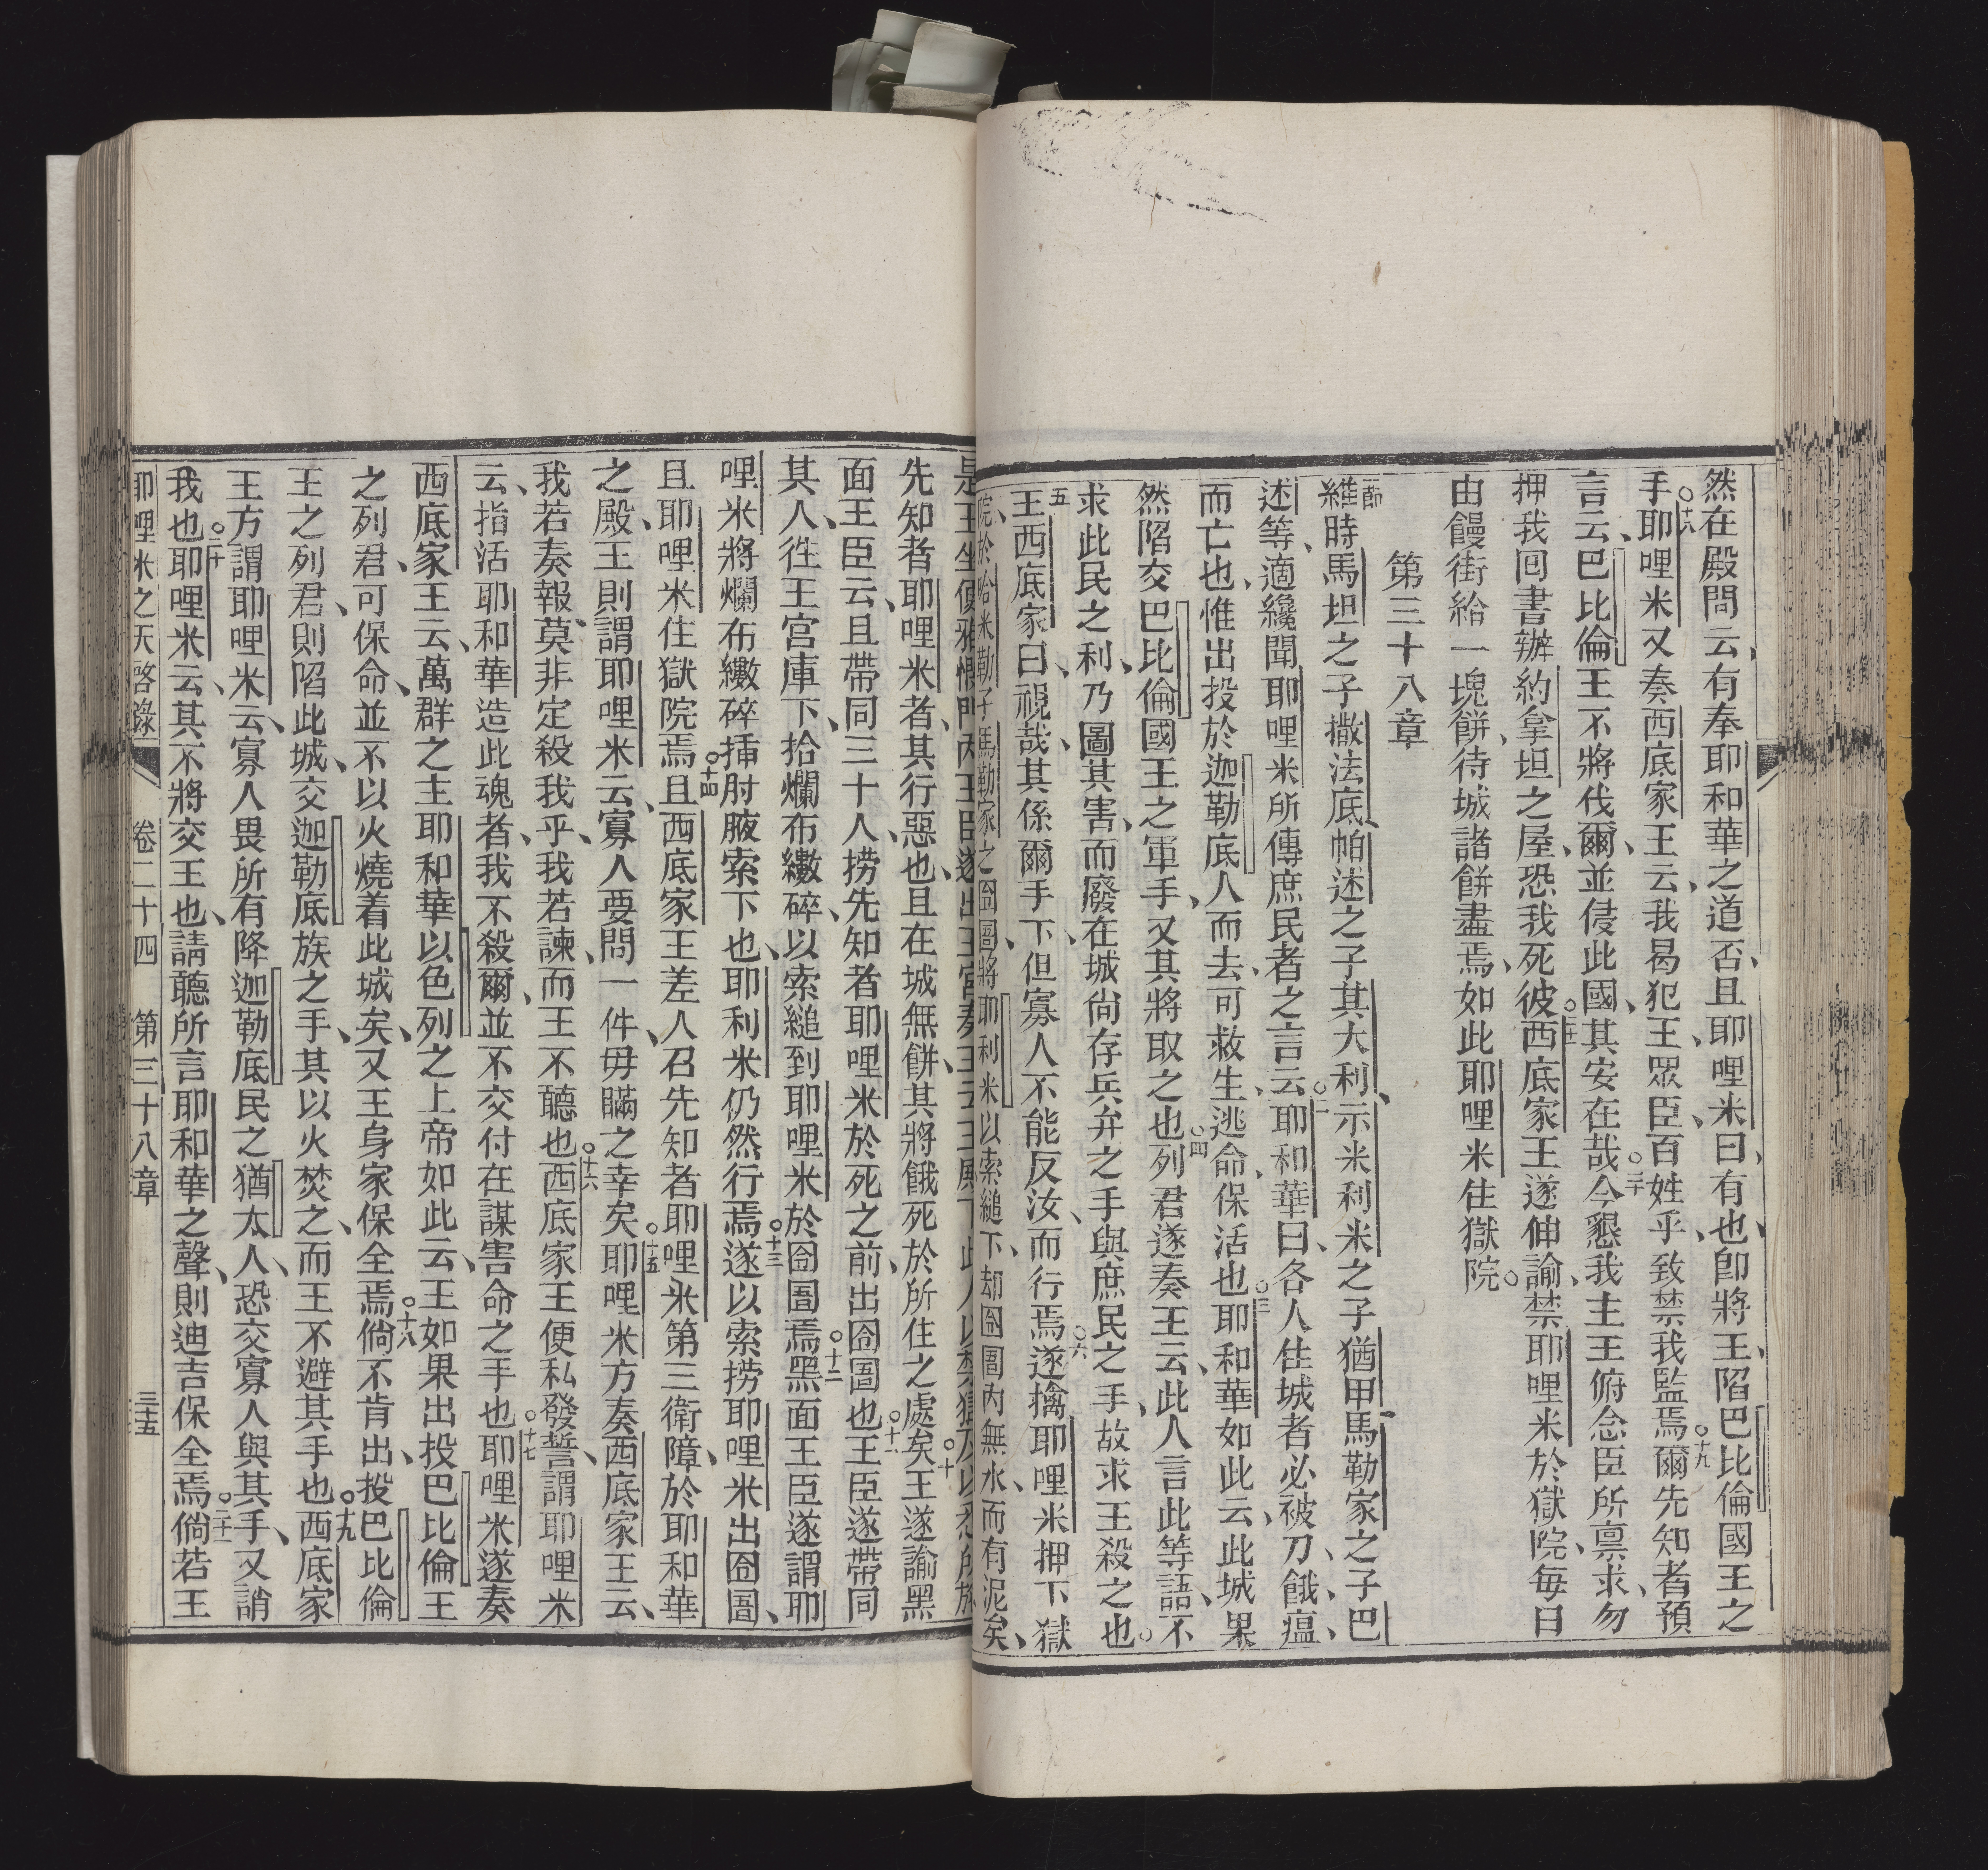 然在殿問云、有奉耶和華之道否、且耶哩米曰、有也、卽將王、陷巴比倫國王之
手、○十八耶哩米又奏西底家王云、我曷犯王、眾臣、百姓乎、致禁我監焉○十九爾先知者預
言云、巴比倫王不將伐爾、並侵此國、其安在哉○二十今懇我主王俯念臣所禀求、勿
押我回書辦約拿坦之屋、恐我死彼○二十一西底家王遂伸諭、禁耶哩米於獄院、每日
由饅街給一塊餅、待城諸餅盡焉、如此耶哩米住獄院○
第三十八章
節維時馬坦之子撒法底、帕述之子其大利、示米利米之子猶甲、馬勒家之子巴
述等、適纔聞耶哩米所傳庶民者之言云○二耶和華曰、各人住城者必被刀、餓、瘟、
而亡也、惟出投於迦勒底人而去、可救生、逃命、保活也○三耶和華如此云、此城果
然陷交巴比倫國王之軍手、又其將取之也○四列君遂奏王云、此人言此等語、不
求此民之利、乃圖其害、而廢在城尙存兵弁之手、與庶民之手、故求王殺之也○
五王西底家曰、視哉、其係爾手下、但寡人不能反汝、而行焉○六遂擒耶哩米押下獄
院、於哈米勒子馬勒家之囹圄、將耶利米以索縋下、却囹圄內無水、而有泥矣、
先知者耶哩米者、其行惡也、且在城無餅、其將餓死於所住之處矣○十王遂諭黑
面王臣云、且帶同三十人、撈先知者耶哩米於死之前、出囹圄也○十一王臣遂帶同
其人、徃王宮庫下、拾爛布繳碎、以索縋到耶哩米於囹圄焉○十二黑面王臣遂謂耶
哩米將爛布繳碎插肘腋索下也、耶利米仍然行焉○十三遂以索撈耶哩米出囹圄、
且耶哩米住獄院焉○十四且西底家王差人召先知者耶哩米第三衛障、於耶和華
之殿、王則謂耶哩米云、寡人要問一件、毋瞞之幸矣○十五耶哩米方奏西底家王云、
我若奏報、莫非定殺我乎、我若諫、而王不聽也○十六西底家王便私發誓、謂耶哩米
云、指活耶和華造此魂者、我不殺爾、並不交付在謀害命之手也○十七耶哩米遂奏
西底家王云、萬群之主耶和華以色列之上帝如此云、王如果出投巴比倫王
之列君、可保命、並不以火燒着此城矣、又王身家保全焉○十八倘不肯出、投巴比倫
王之列君、則陷此城、交迦勒底族之手、其以火焚之、而王不避其手也○十九西底家
王方謂耶哩米云、寡人畏所有降迦勒底民之猶太人、恐交寡人與其手、又誚
我也○二十耶哩米云、其不將交王也、請聽所言耶和華之聲、則迪吉保全焉○二十一倘若王
耶哩米之天啓錄 卷二十四 第三十八章 三十五